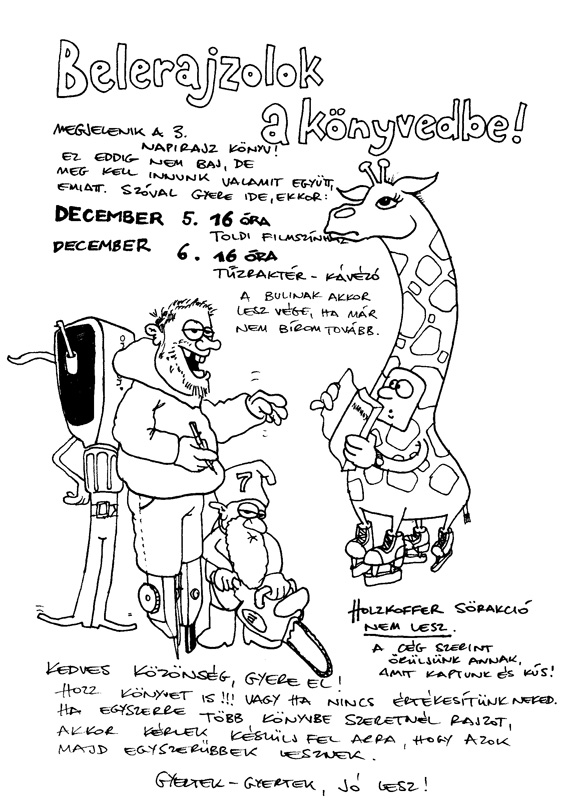 Belerajzolok
a könyvedbe!
MEGJELENIK A 3.
NAPIRAJZ KÖNYV!
EZ EDDIG NEM BAJ, DE
MEG KELL INNUNK VALAMIT EGYÜTT,
EMIATT. SZÓVAL GYERE IDE, EKKOR:
DECEMBER 5. 16 ÓRA
TOLDI FILMSZÍNHÁZ
DECEMBER 6. 16 ÓRA
TŰZRAKTÉR - KÁVÉZÓ
A BULINAK AKKOR
LESZ VÉGE, HA MÁR
NEM BÍROM TOVÁBB.
7
HOLZKOFFER SÖRAKCIÓ
NEM LESZ.
A CÉG SZERINT
ÖRÜLJÜNK ANNAK,
AMIT KAPTUNK ÉS KUS!
KEDVES KÖZÖNSÉG, GYERE EL!
HOZZ KÖNYVET IS!!! VAGY HA NINCS ÉRTÉKESÍTÜNK NEKED.
HA EGYSZERRE TÖBB KÖNYVBE SZERETNÉL RAJZOT,
AKKOR KÉRLEK KÉSZÜLJ FEL ARRA, HOGY AZOK
MAJD EGYSZERŰBBEK LESZNEK.
GYERTEK-GYERTEK, JÓ LESZ!